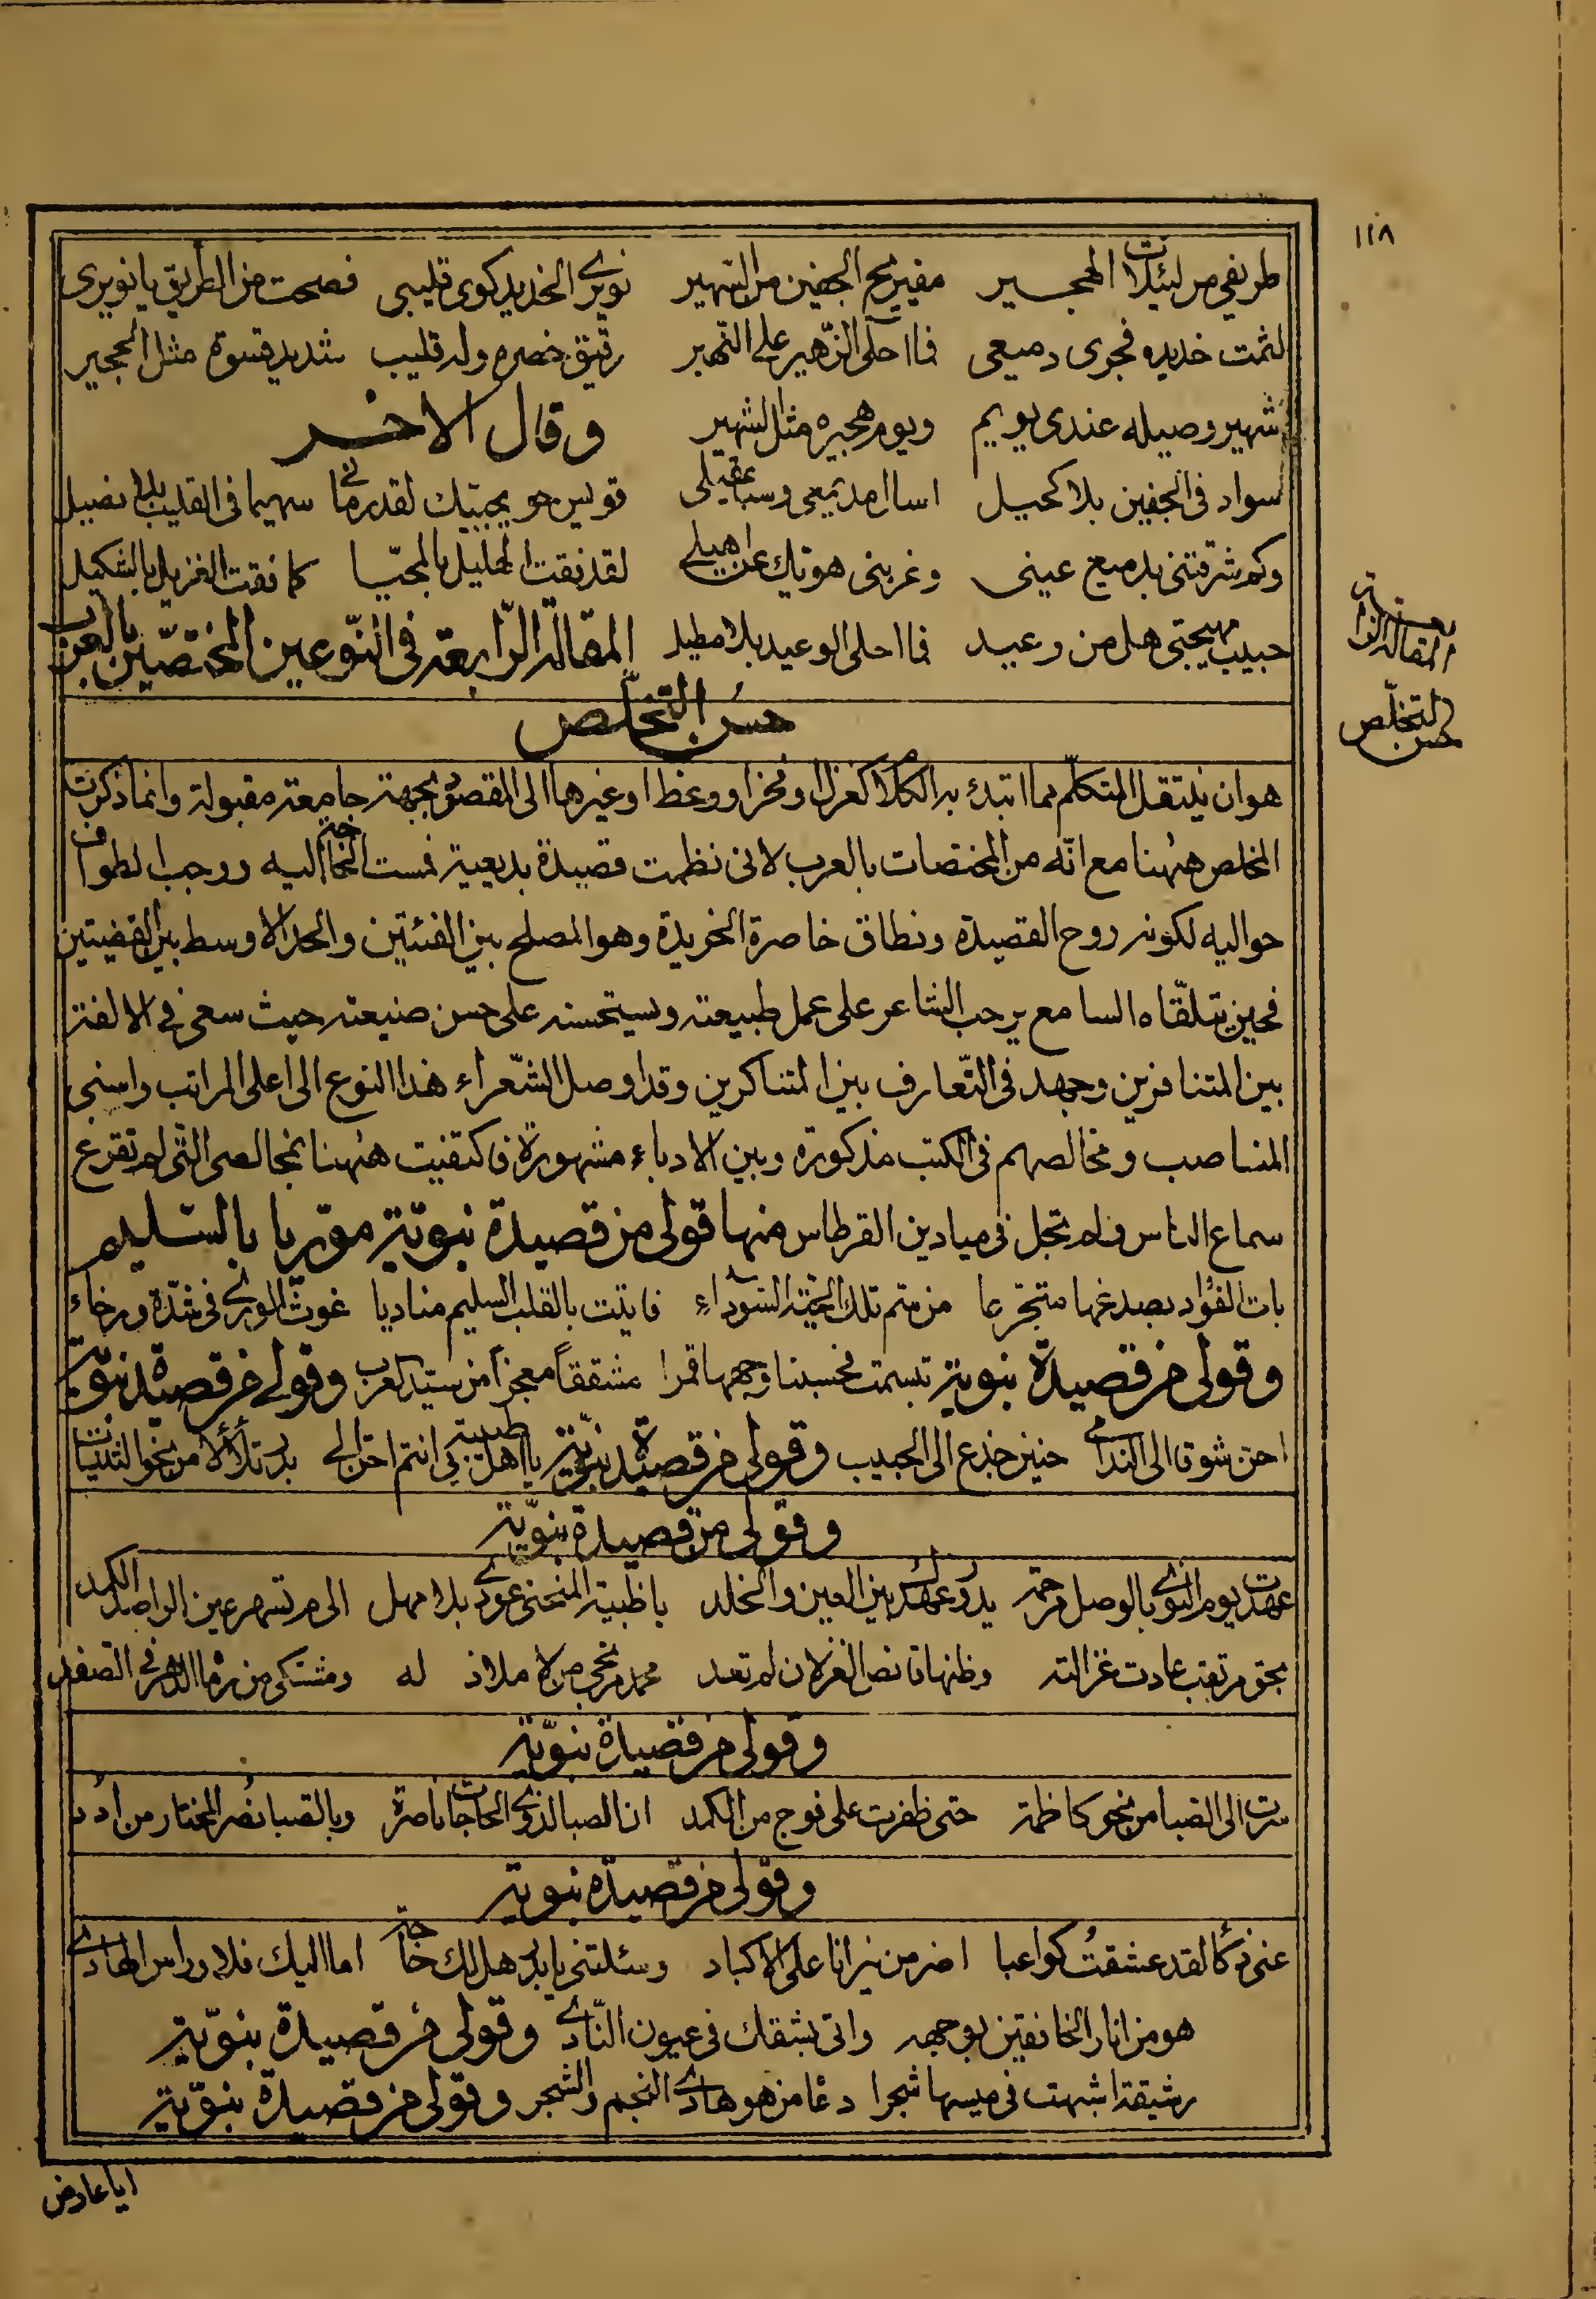 ١١٨
طريفي من لييلات الهجير مقيريح الجفين من السهير نويري الخديد كوى قليبي فصحت من الطريق يا نويرى
لثمت خديده فجرى دميعى فما احلى الزهير على النهير رقيق خصره وله قليب شديد قسوة مثل الحجير
شهير وصيله عندى يويم ويوم هجيره مثل الشهير وقال الاخر
سواد فى الجفين بلا كحيل اسال مديمعى وسبا عقيلى قويس حويجبيك لقد رمانى سهيما فى القليب بلا نصيل
وكم شرقتنى بدميع عينى وغربنى هويك عن اهيلى لقد نقت الهليل بالمحيا كما نقت الغزيل بالشكيل
حبيب مهيجتى هل من وعيد فما احلى الوعيد بلا مطيل المقالة الرابعة فى النوعين المختصين بالعرب
المقالة الرابعة
حسن التخلص
حسن التخلص
هو ان ينتقل المتكلم مما ابتدئ به الكلام كغزل او فخر او وعظ او غيرها الى المقصود بجهة جامعة مقبولة وانما ذكرت
المخلص ههنا مع انه من المختصات بالعرب لانى نظمت قصيدة بديعية فمست الحاجة اليه ووجب الطواف
حواليه لكونه روح القصيدة ونطاق خاصرة الخريدة وهو المصلح بين الفئتين والحد الاوسط بين القضيتين
فحين يتلقاه السامع يرحب الشاعر على عمل طبيعته ويستحسنه على حسن صنيعته حيث سعى فى الالفة
بين المتنافرين وجهد فى التعارف بين المتناكرين وقد اوصل الشعراء هذا النوع الى اعلى المراتب واسنى
المناصب ومخالصهم فى الكتب مذكورة وبين الادباء مشهورة فاكتفيت ههنا بمخالصى التى لم تقرع
سماع الناس ولم تجل فى ميادين القرطاس منها قولى من قصيدة نبوية موريا بالسليم
بات الفؤاد بصدغها متجرعا من سم تلك الحية السوداء فاتيت بالقلب السليم مناديا غوث الورى فى شدة ورخاء
وقولى من قصيدة نبوية تبسمت فحسبنا وجهها قمرا مشققا معجزا من سيد العرب وقولى من قصيدة نبوية
احن شوقا الى الندامى حنين جذع الى الحبيب وقولى من قصيدة نبوية يا اهل طيبة انتم احن الى بدر تلألأ من نحو الثنيات
وقولى من قصيدة نبوية
عهدت يوم النوى بالوصل مرحمة بين العين والخلد يا ظبية المنحنى عودى بلا مهل الى م تسهر عين الراصد الكمد
بحق من عادت غزالته وظنها قانص الغزلان لم تعد محمد من لا ملاذ له ومشتكى من رماه الدهر فى الصفد
وقولى من قصيدة نبوية
سرت الى الصبا من نحو كاظمة حتى ظفرت على فوج من الكمد ان الصبا لذوى الحاجات ناصرة وبالصبا نصر المختار من ادد
وقولى من قصيدة نبوية
لقد عشقت كواعبا اضر من نيرانا على الاكباد وسئلتنى يا بدر هل لك حاجة اما اليك فلا وراس الهادى
هو من انار الخافقين بوجهه واتى بشقك فى عيون النادى وقولى من قصيدة نبوية
رشيقة اشبهت فى ميسها شجرا دعا من هو هادى النجم والشجر وقولى من قصيدة نبوية
ايا عارض